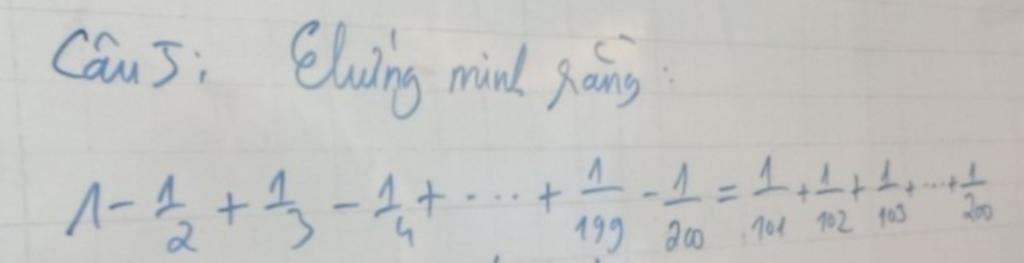 Câu 5: Chứng minh rằng:
1 - 1/2 + 1/3 - 1/4 + ... + 1/199 - 1/200 = 1/101 + 1/102 + 1/103 + ... + 1/200